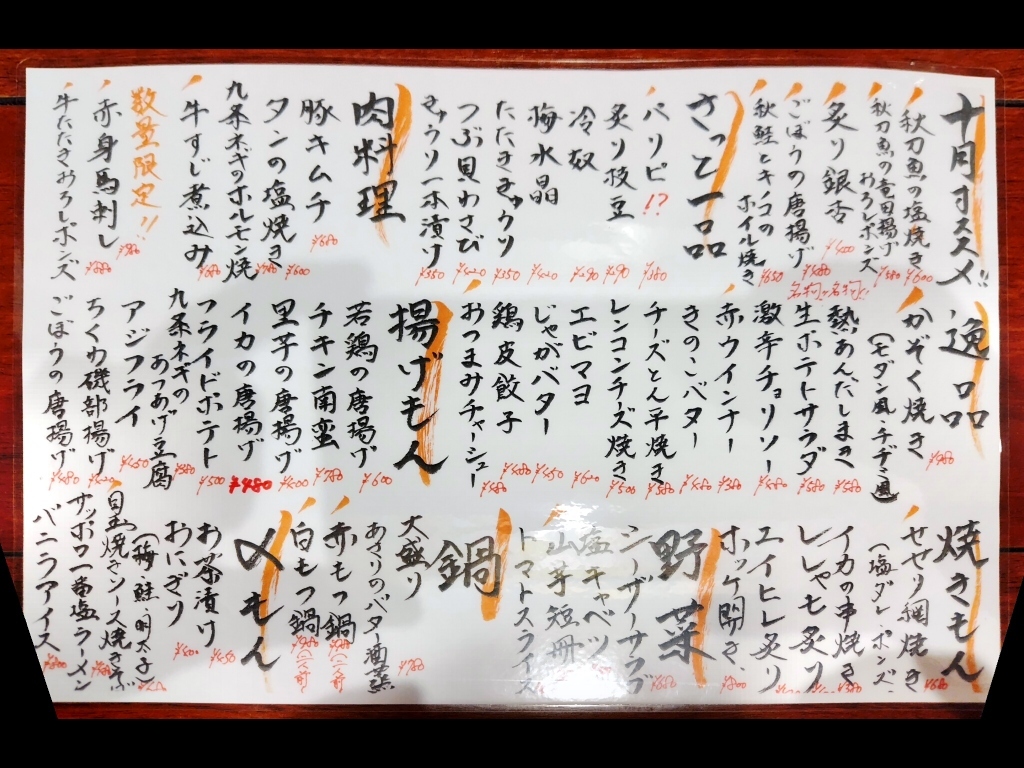 十月オススメ!!
秋刀魚の塩焼き ¥600
秋刀魚の竜田揚げ
おろしポンズ ¥680
炙り銀杏 ¥400
ごぼうの唐揚げ ¥480
秋鮭とキノコの
ホイル焼き ¥650
さっと一品
パリピ!? ¥380
炙り枝豆 ¥290
冷奴 ¥290
梅水晶 ¥420
たたききゅうり ¥350
つぶ貝わさび ¥420
きゅうり一本漬け ¥350
肉料理
豚キムチ ¥600
タンの塩焼き ¥780
九条ネギのホルモン焼
牛すじ煮込み ¥680
数量限定!!
赤身馬刺し ¥980
牛たたきおろしポンズ ¥880
逸品
かぞく焼き
(モダン風・チヂミ風) ¥980
名物!!
熱あんだしまき ¥580
名物!!
生ポテトサラダ ¥580
激辛チョリソー ¥480
赤ウインナー ¥380
きのこバター ¥480
チーズとん平焼き ¥580
レンコンチーズ焼き ¥500
エビマヨ ¥620
じゃがバター ¥450
鶏皮餃子 ¥480
おつまみチャーシュー ¥580
揚げもん
若鶏の唐揚げ ¥600
チキン南蛮 ¥780
里芋の唐揚げ ¥500
イカの唐揚げ ¥480
フライドポテト ¥500
九条ネギの
あつあげ豆腐 ¥580
アジフライ ¥450
ちくわ磯部揚げ ¥400
ごぼうの唐揚げ ¥480
焼きもん
セセリ網焼き
(塩ダレ・ポンズ) ¥680
イカの串焼き ¥380
ししゃも炙り
エイヒレ炙り
ホッケ開き ¥800
野菜
シーザーサラダ ¥680
塩キャベツ
山芋短冊
トマトスライス
鍋
大盛り
あさりのバター酒蒸 ¥780
赤もつ鍋 ¥980(一人前)
白もつ鍋 ¥980(一人前)
〆もん
お茶漬け ¥450
おにぎり ¥400
(梅・鮭・明太子)
目玉焼きソース焼きそば
サッポロ一番塩ラーメン
バニラアイス